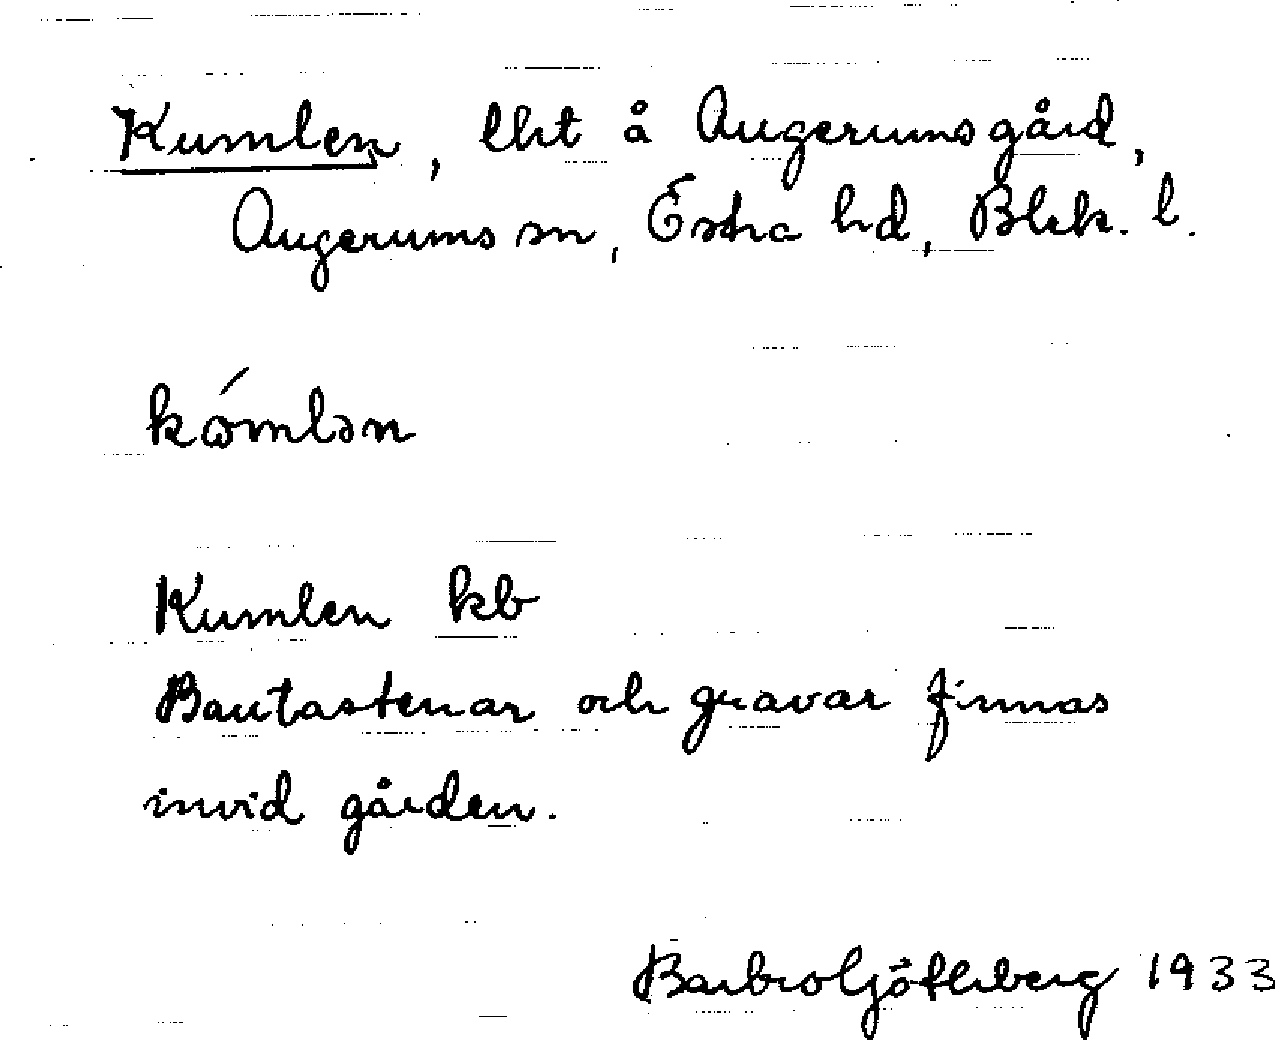 Kumlen, lht å Augerumsgård,
Augerums sn, Östra hd, Blek. l.
kómlən
Kumlen kb
Bautastenar och gravar finnas
invid gården.
Barbro Götherberg 1933